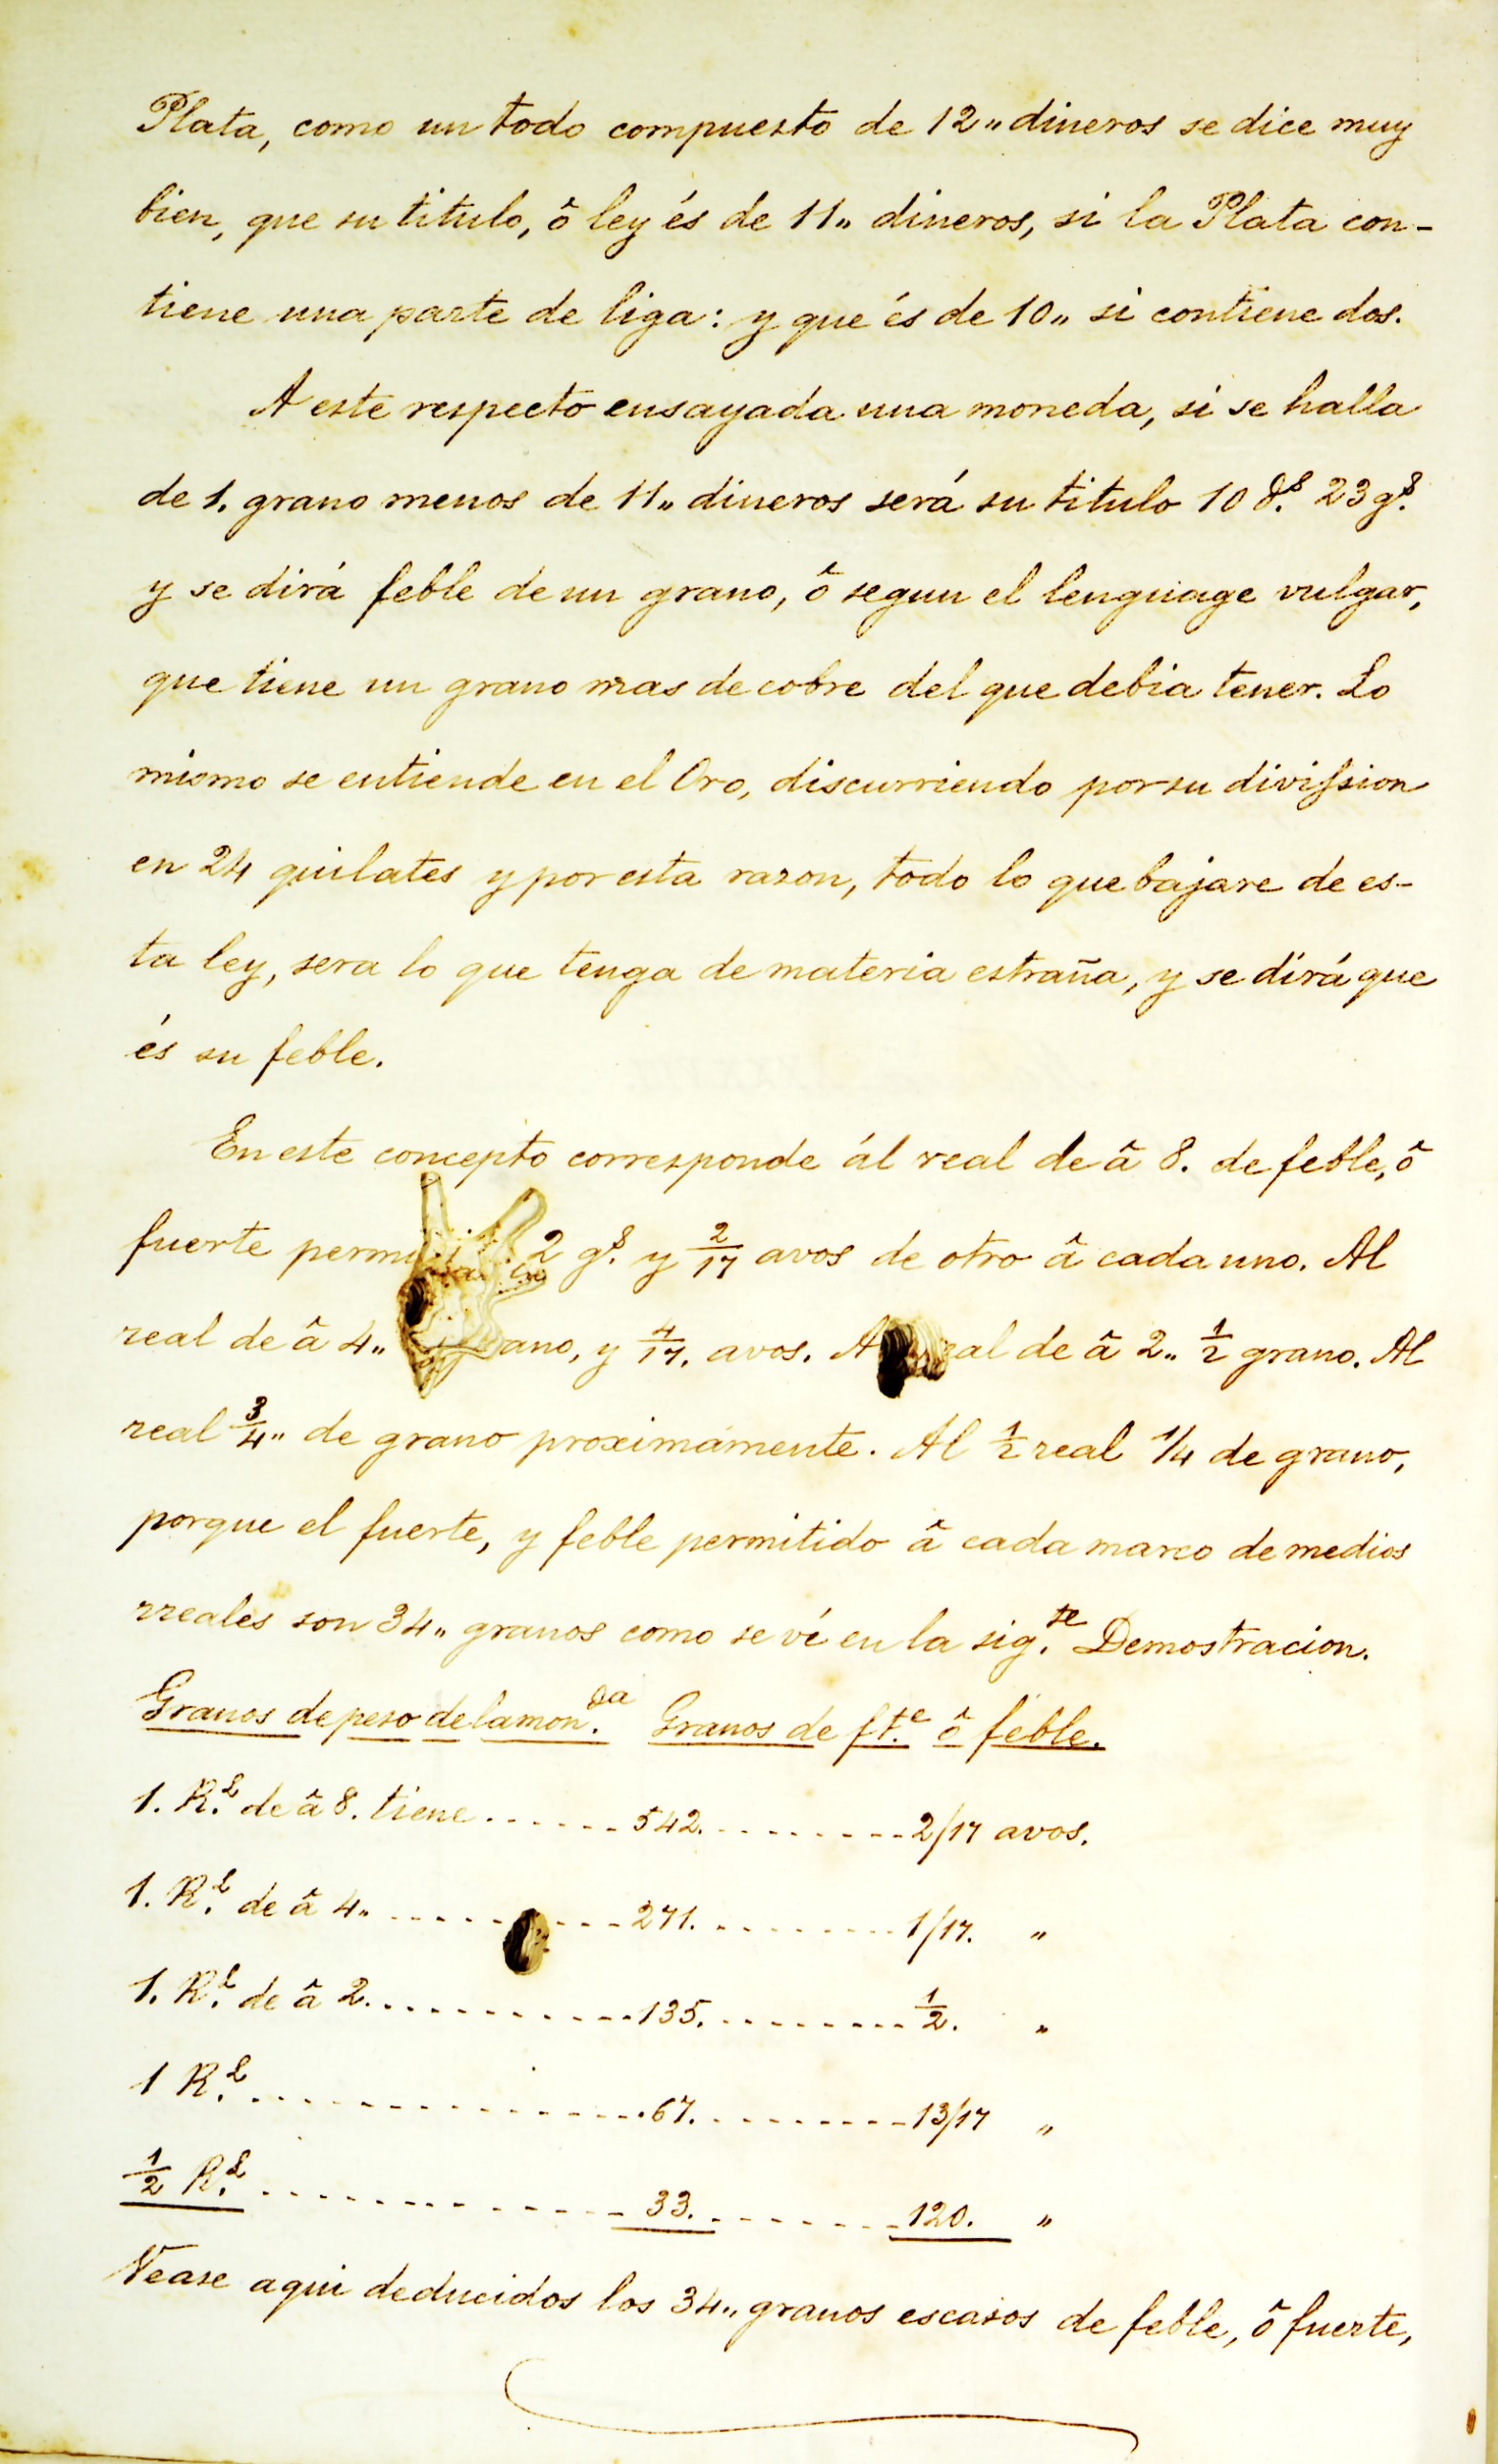 Plata, como un todo compuesto de 12„ dineros se dice muy
bien, que su titulo, ô ley és de 11„ dineros, si la Plata con-
tiene una parte de liga: y que és de 10„ si contiene dos.
A este respecto ensayada una moneda, si se halla
de 1. grano menos de 11„ dineros será su titulo 10 d.s 23 g.s
y se dirá feble de un grano, ô segun el lenguage vulgar,
que tiene un grano mas de cobre del que debia tener. Lo
mismo se entiende en el Oro, discurriendo por su divission
en 24 quilates y por esta razon, todo lo que bajare de es-
ta ley, sera lo que tenga de materia estraña, y se dirá que
és su feble.
En este concepto corresponde ál real de â 8. de feble, ô
fuerte 2 g.s y 2/17 avos de otro â cada uno. Al
real de â 4„ y 4/17. avos. de â 2„ 1/2 grano. Al
real 3/4„ de grano proximámente. Al 1/2 real 1/4 de grano,
porque el fuerte, y feble permitido â cada marco de medios
rreales son 34„ granos como se vé en la sig.te Demostracion.
Granos de peso de la mon.da Granos de ft.e ô feble.
1. R.l de â 8. tiene ...... 542. ........ 2/17 avos.
1. R.l de â 4„ ........ 271. ........ 1/17. „
1. R.l de â 2. ........... 135. ........ 1/2. „
1 R.l ................ 67. ........ 13/17 „
1/2 R.l ............. 33. ....... 120. „
Vease aqui deducidos los 34„ granos escasos de feble, ô fuerte,